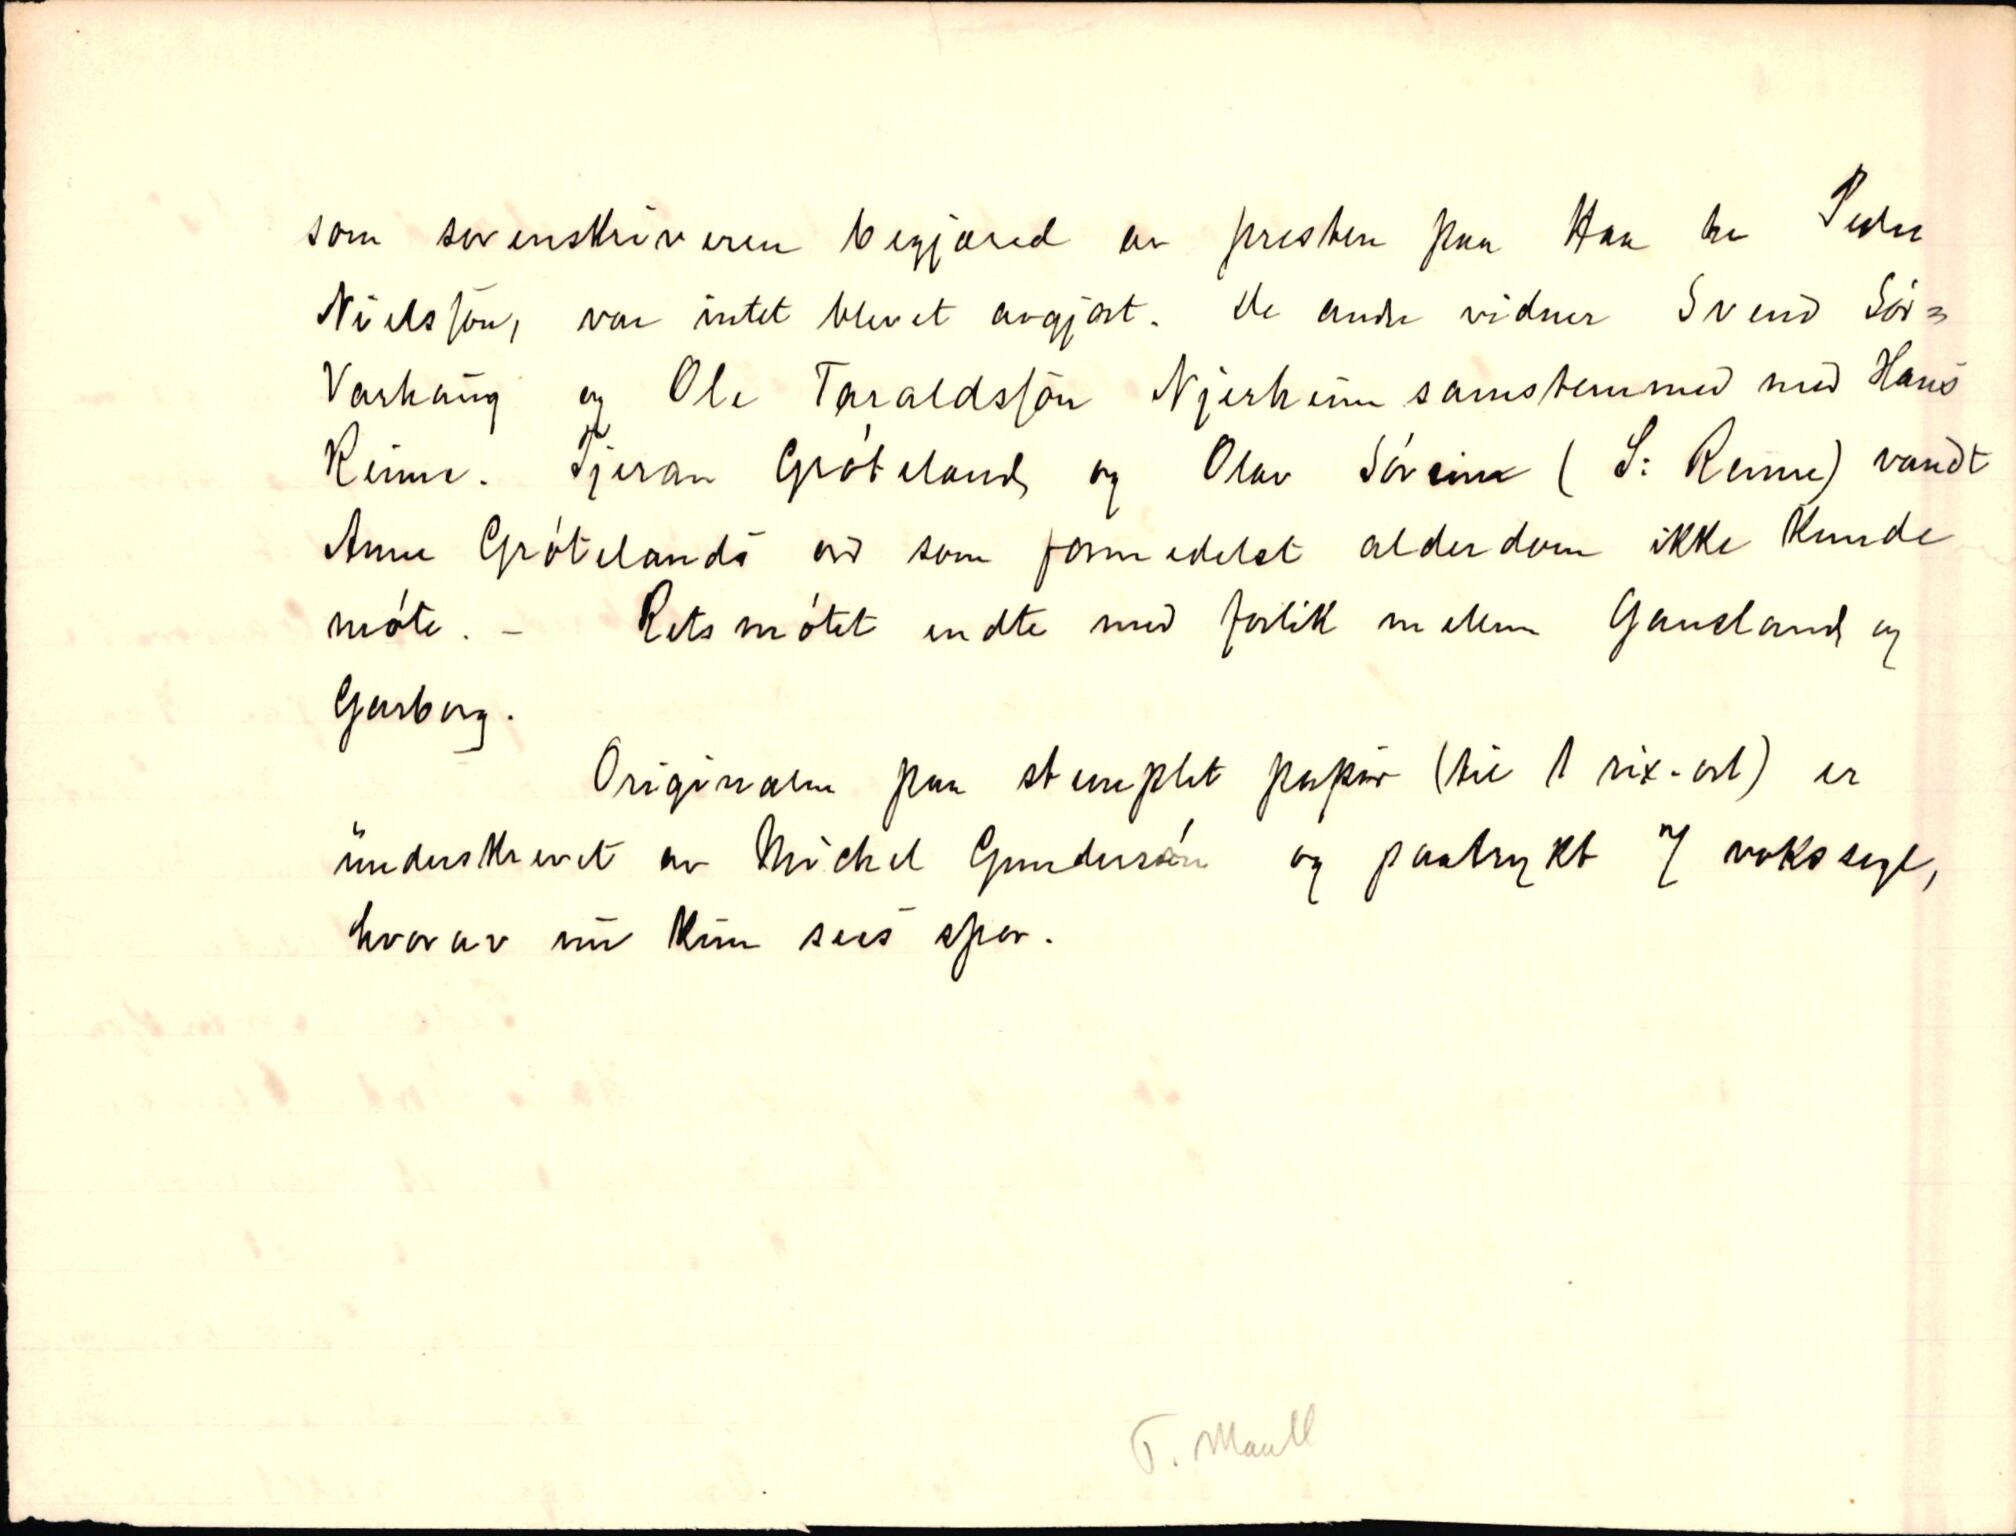 som sorenskriveren begjæred av presten paa Haa hr Peder
Nielsøn, var intet blevet avgjort. De andre vidner Svend Sór=
Varhaug og Ole Taraldsøn Njerheim samstemmed med Hans
Reime. Tjeran Gróteland og Olav Sóreime (S: Reime) vandt
Anne Grótelands ord som formedelst alderdom ikke kunde
móte. - Retsmótet endte med forlik mellem Gausland og
Garborg.
Originalen paa stemplet papir (til 1 rix-ort) er
underskrevet av Michel Gundersón og paatrykt voksseyl,
hvorav nu kun sees spor.
T. Maull